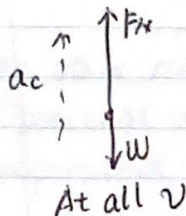 FN
ac
W
At all v